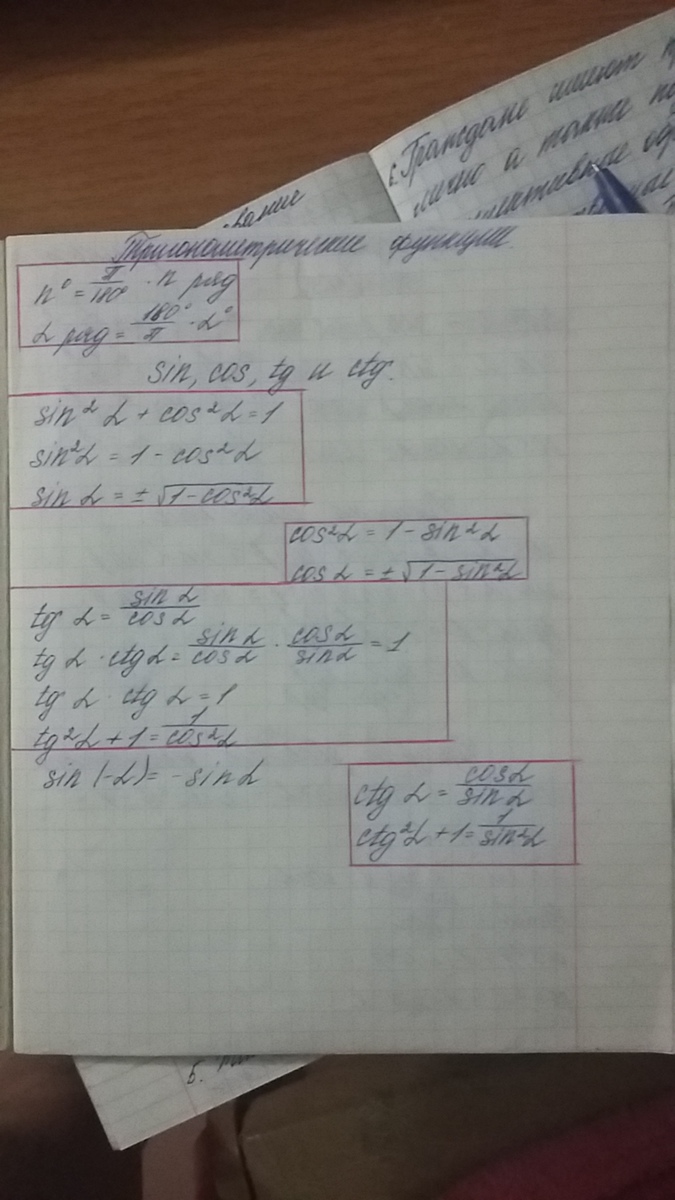 6. Граждане имеют
лично а также
вание
Тригонометрические функции.
n° = π/180° · n рад
α рад = 180°/π · α°
sin, cos, tg и ctg.
sin² α + cos² α = 1
sin² α = 1 - cos² α
sin α = ± √(1 - cos² α)
cos² α = 1 - sin² α
cos α = ± √(1 - sin² α)
tg α = sin α/cos α
tg α · ctg α = sin α/cos α · cos α/sin α = 1
tg α · ctg α = 1
tg² α + 1 = 1/cos² α
sin (-α) = -sin α
ctg α = cos α/sin α
ctg² α + 1 = 1/sin² α
5.